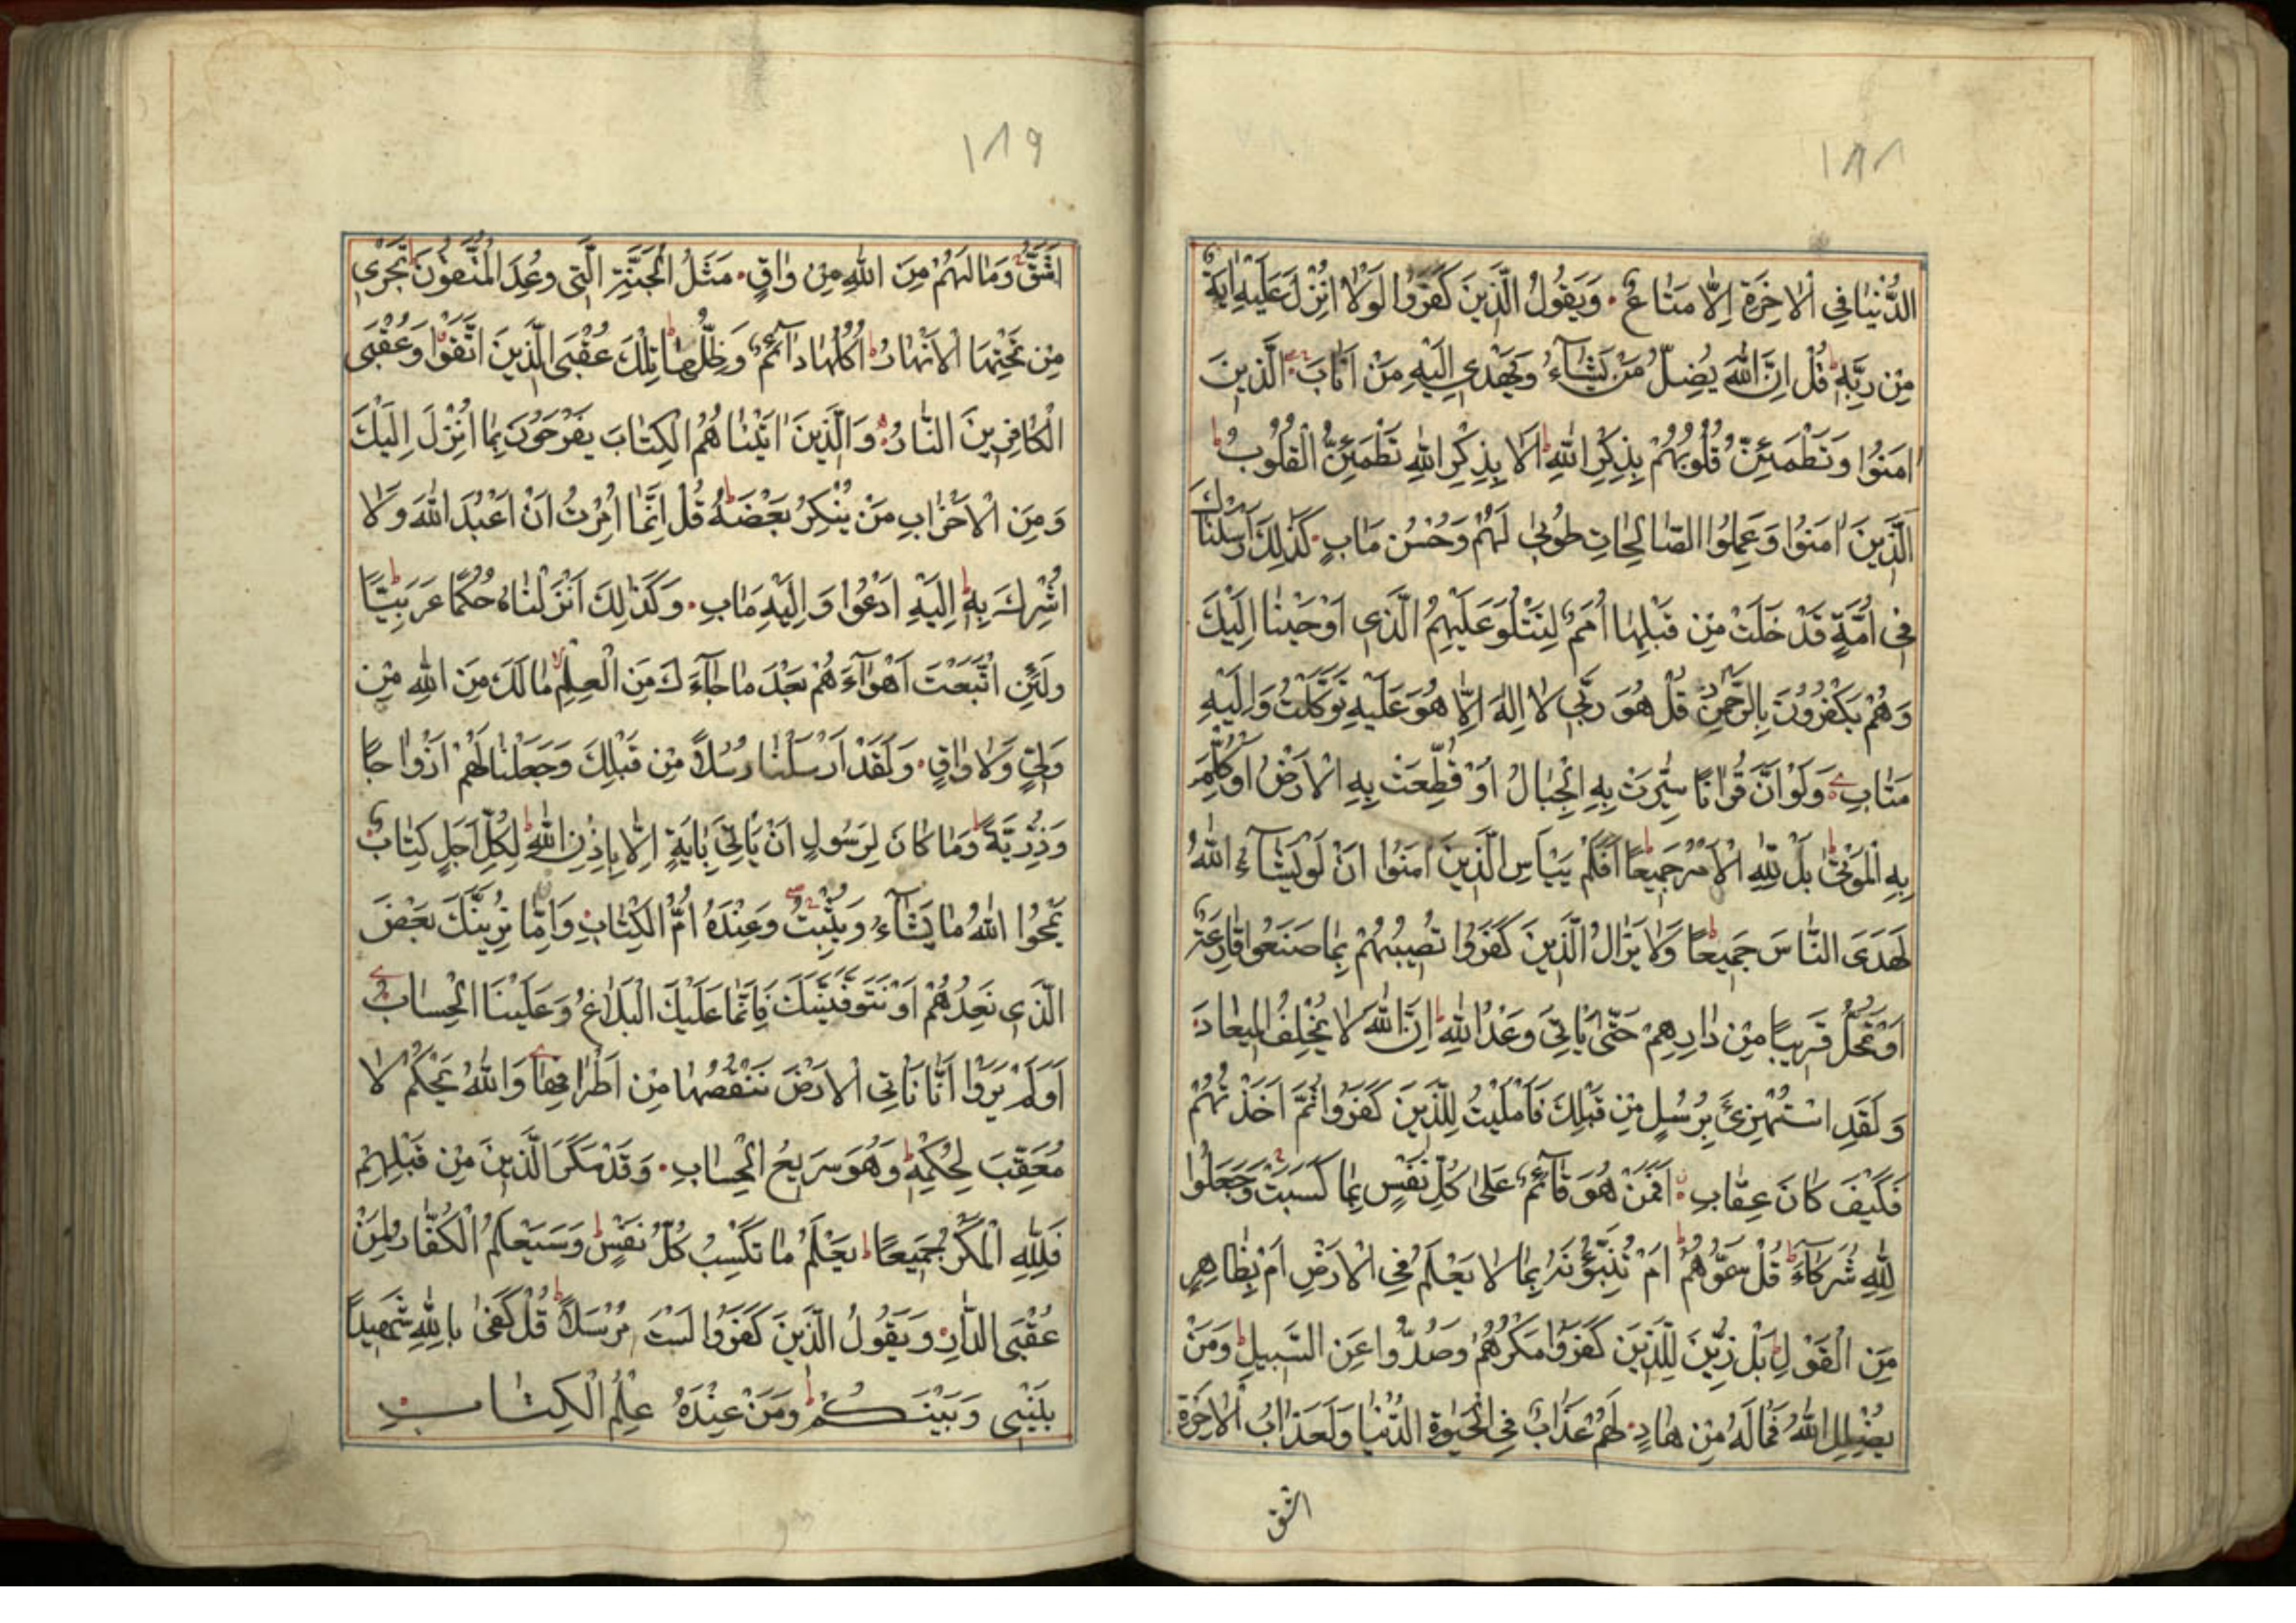 ١٨٨
الدُّنْيٰا فِي الْاٰخِرَةِ اِلّٰا مَتٰاعٌ وَيَقُولُ الَّذِينَ كَفَرُوا لَوْلٰا اُنْزِلَ عَلَيْهِ اٰيَةٌ
مِنْ رَبِّهِ قُلْ اِنَّ اللّٰهَ يُضِلُّ مَنْ يَشٰآءُ وَيَهْدِي اِلَيْهِ مَنْ اَنٰابَ الَّذِينَ
اٰمَنُوا وَتَطْمَئِنُّ قُلُوبُهُمْ بِذِكْرِ اللّٰهِ اَلٰا بِذِكْرِ اللّٰهِ تَطْمَئِنُّ الْقُلُوبُ
اَلَّذِينَ اٰمَنُوا وَعَمِلُوا الصّٰالِحٰاتِ طُوبىٰ لَهُمْ وَحُسْنُ مَاٰبٍ كَذٰلِكَ اَرْسَلْنٰاكَ
فِي اُمَّةٍ قَدْ خَلَتْ مِنْ قَبْلِهٰا اُمَمٌ لِتَتْلُوَ عَلَيْهِمُ الَّذِي اَوْحَيْنٰا اِلَيْكَ
وَهُمْ يَكْفُرُونَ بِالرَّحْمٰنِ قُلْ هُوَ رَبِّي لٰا اِلٰهَ اِلّٰا هُوَ عَلَيْهِ تَوَكَّلْتُ وَاِلَيْهِ
مَتٰابِ وَلَوْ اَنَّ قُرْاٰنًا سُيِّرَتْ بِهِ الْجِبٰالُ اَوْ قُطِّعَتْ بِهِ الْاَرْضُ اَوْ كُلِّمَ
بِهِ الْمَوْتىٰ بَلْ لِلّٰهِ الْاَمْرُ جَمِيعًا اَفَلَمْ يَيْاَسِ الَّذِينَ اٰمَنُوا اَنْ لَوْ يَشٰآءُ اللّٰهُ
لَهَدَى النّٰاسَ جَمِيعًا وَلٰا يَزٰالُ الَّذِينَ كَفَرُوا تُصِيبُهُمْ بِمٰا صَنَعُوا قٰارِعَةٌ
اَوْ تَحُلُّ قَرِيبًا مِنْ دٰارِهِمْ حَتّٰى يَاْتِيَ وَعْدُ اللّٰهِ اِنَّ اللّٰهَ لٰا يُخْلِفُ الْمِيعٰادَ
وَلَقَدِ اسْتُهْزِئَ بِرُسُلٍ مِنْ قَبْلِكَ فَاَمْلَيْتُ لِلَّذِينَ كَفَرُوا ثُمَّ اَخَذْتُهُمْ
فَكَيْفَ كٰانَ عِقٰابِ اَفَمَنْ هُوَ قٰآئِمٌ عَلىٰ كُلِّ نَفْسٍ بِمٰا كَسَبَتْ وَجَعَلُوا
لِلّٰهِ شُرَكٰآءَ قُلْ سَمُّوهُمْ اَمْ تُنَبِّؤُنَهُ بِمٰا لٰا يَعْلَمُ فِي الْاَرْضِ اَمْ بِظٰاهِرٍ
مِنَ الْقَوْلِ بَلْ زُيِّنَ لِلَّذِينَ كَفَرُوا مَكْرُهُمْ وَصُدُّوا عَنِ السَّبِيلِ وَمَنْ
يُضْلِلِ اللّٰهُ فَمٰا لَهُ مِنْ هٰادٍ لَهُمْ عَذٰابٌ فِي الْحَيٰوةِ الدُّنْيٰا وَلَعَذٰابُ الْاٰخِرَةِ
اشق
١٨٩
اَشَقُّ وَمٰا لَهُمْ مِنَ اللّٰهِ مِنْ وٰاقٍ مَثَلُ الْجَنَّةِ الَّتِي وُعِدَ الْمُتَّقُونَ تَجْرِي
مِنْ تَحْتِهَا الْاَنْهٰارُ اُكُلُهٰا دٰآئِمٌ وَظِلُّهٰا تِلْكَ عُقْبَى الَّذِينَ اتَّقَوْا وَعُقْبَى
الْكٰافِرِينَ النّٰارُ وَالَّذِينَ اٰتَيْنٰاهُمُ الْكِتٰابَ يَفْرَحُونَ بِمٰا اُنْزِلَ اِلَيْكَ
وَمِنَ الْاَحْزٰابِ مَنْ يُنْكِرُ بَعْضَهُ قُلْ اِنَّمٰا اُمِرْتُ اَنْ اَعْبُدَ اللّٰهَ وَلٰا
اُشْرِكَ بِهِ اِلَيْهِ اَدْعُوا وَاِلَيْهِ مَاٰبِ وَكَذٰلِكَ اَنْزَلْنٰاهُ حُكْمًا عَرَبِيًّا
وَلَئِنِ اتَّبَعْتَ اَهْوٰآءَهُمْ بَعْدَ مٰا جٰآءَكَ مِنَ الْعِلْمِ مٰا لَكَ مِنَ اللّٰهِ مِنْ
وَلِيٍّ وَلٰا وٰاقٍ وَلَقَدْ اَرْسَلْنٰا رُسُلًا مِنْ قَبْلِكَ وَجَعَلْنٰا لَهُمْ اَزْوٰاجًا
وَذُرِّيَّةً وَمٰا كٰانَ لِرَسُولٍ اَنْ يَاْتِيَ بِاٰيَةٍ اِلّٰا بِاِذْنِ اللّٰهِ لِكُلِّ اَجَلٍ كِتٰابٌ
يَمْحُوا اللّٰهُ مٰا يَشٰآءُ وَيُثْبِتُ وَعِنْدَهُ اُمُّ الْكِتٰابِ وَاِمّٰا نُرِيَنَّكَ بَعْضَ
الَّذِي نَعِدُهُمْ اَوْ نَتَوَفَّيَنَّكَ فَاِنَّمٰا عَلَيْكَ الْبَلٰاغُ وَعَلَيْنَا الْحِسٰابُ
اَوَلَمْ يَرَوْا اَنّٰا نَاْتِي الْاَرْضَ نَنْقُصُهٰا مِنْ اَطْرٰافِهٰا وَاللّٰهُ يَحْكُمُ لٰا
مُعَقِّبَ لِحُكْمِهِ وَهُوَ سَرِيعُ الْحِسٰابِ وَقَدْ مَكَرَ الَّذِينَ مِنْ قَبْلِهِمْ
فَلِلّٰهِ الْمَكْرُ جَمِيعًا يَعْلَمُ مٰا تَكْسِبُ كُلُّ نَفْسٍ وَسَيَعْلَمُ الْكُفّٰارُ لِمَنْ
عُقْبَى الدّٰارِ وَيَقُولُ الَّذِينَ كَفَرُوا لَسْتَ مُرْسَلًا قُلْ كَفىٰ بِاللّٰهِ شَهِيدًا
بَيْنِي وَبَيْنَكُمْ وَمَنْ عِنْدَهُ عِلْمُ الْكِتٰابِ